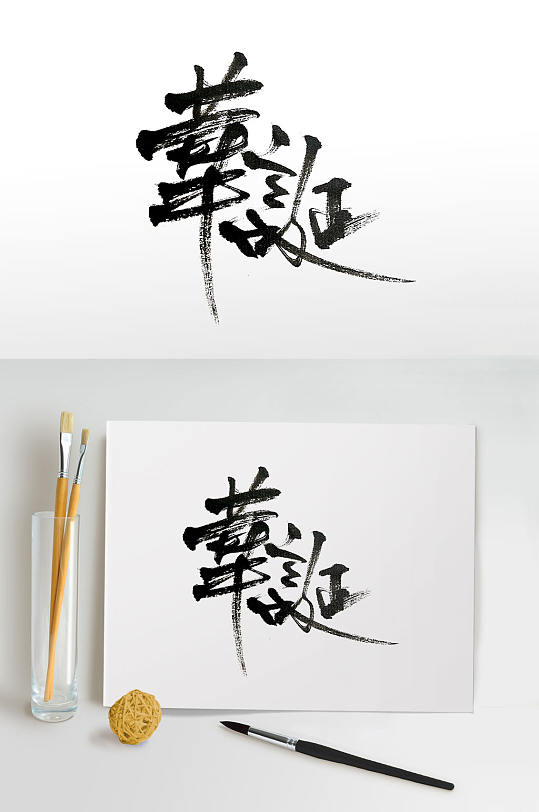 華誕
華誕